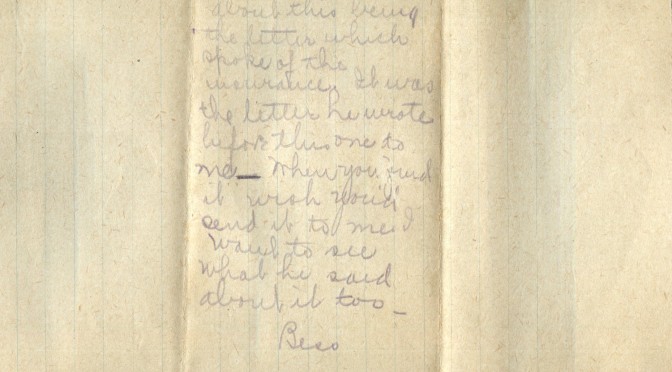 about this being
the letter which
spoke of the
insurance. It was
the letter he wrote
before this one to
me_ When you find
it wish you'd
send it to me I
want to see
what he said
about it too_
Bess